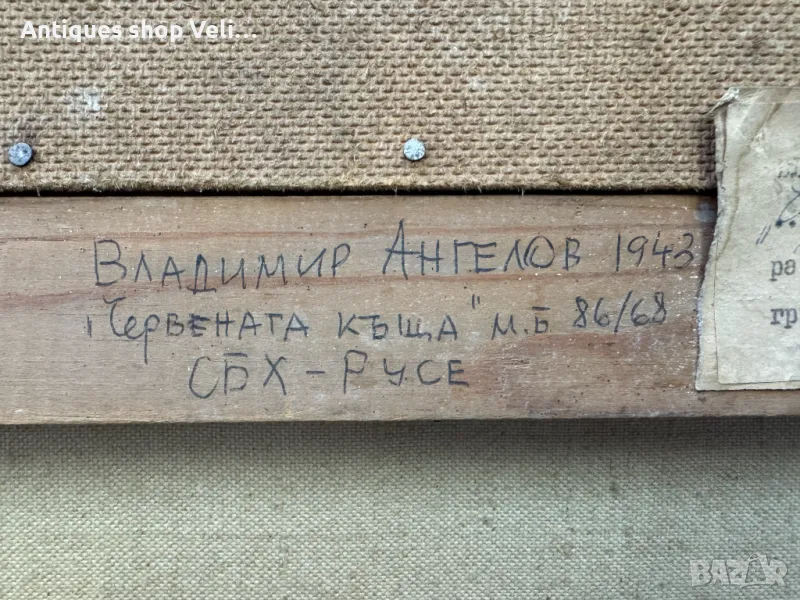 Antiques shop Veli...
Владимир Ангелов 1943
"Червената къща" м.Б 86/68
СБХ - Русе
ра
гр
BAZAR